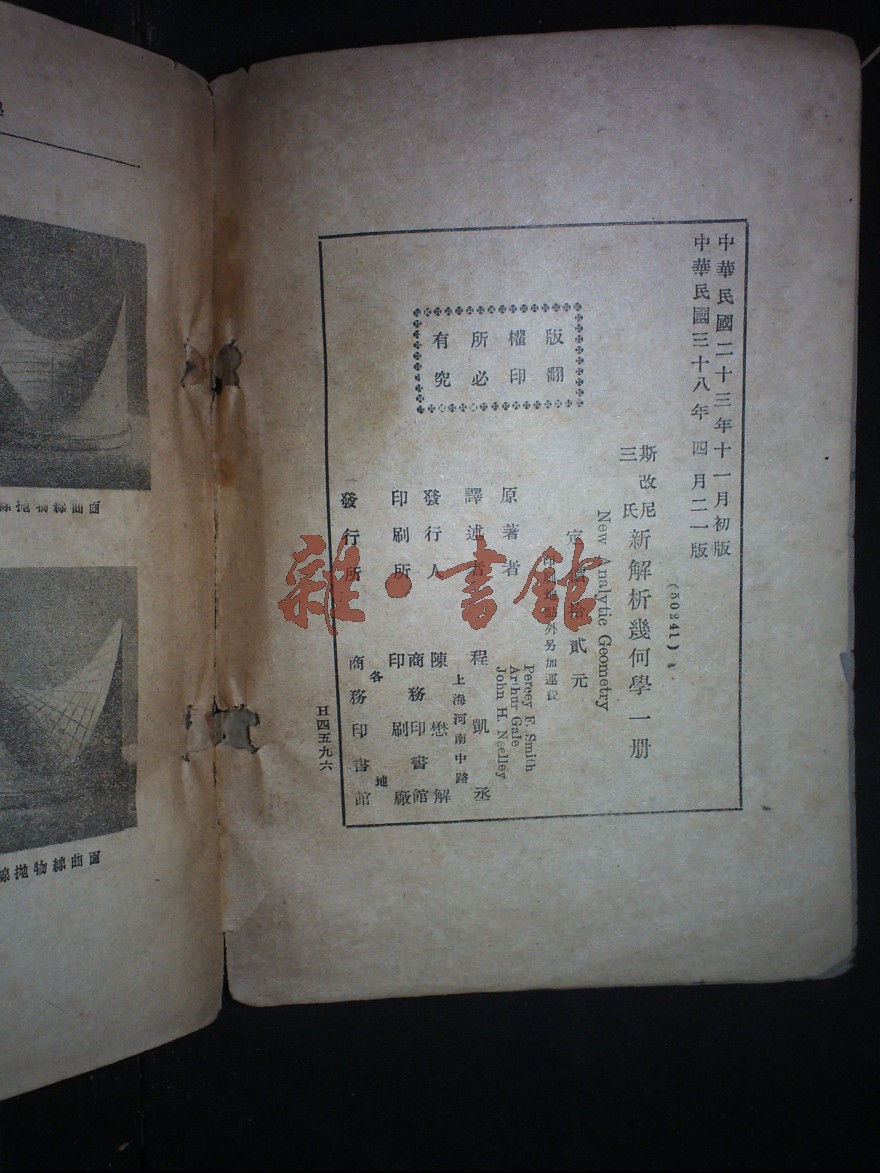 拋物線曲面
拋物線曲面
中華民國二十三年十一月初版
中華民國三十八年四月二一版
(50241)
斯改尼三氏新解析幾何學一册
New Analytic Geometry
定價拾貳元
印刷地點外另加運費
版權所有
翻印必究
原著者
Percey F. Smith
Arthur Gale
John H. Neelley
譯述者 程凱丞
發行人 陳懋解
上海河南中路
印刷所 商務印書館
印刷廠
發行所 各地
商務印書館
H四五九六
雜·書館